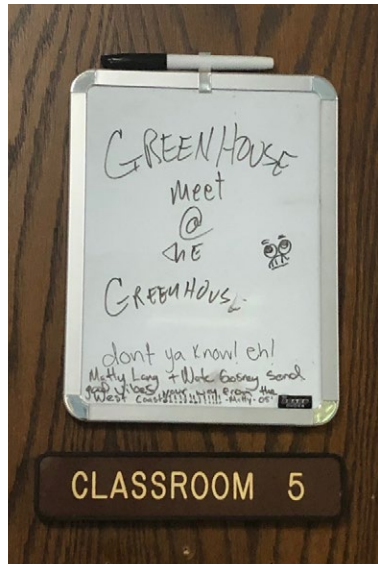 GREENHOUSE
meet
@
the
GREENHOUSE
dont ya know! eh!
Matty Lang + Nate Gosney send
good vibes your way from the
West Coast!!!!!!!!!!! -Matty-05'
CLASSROOM 5